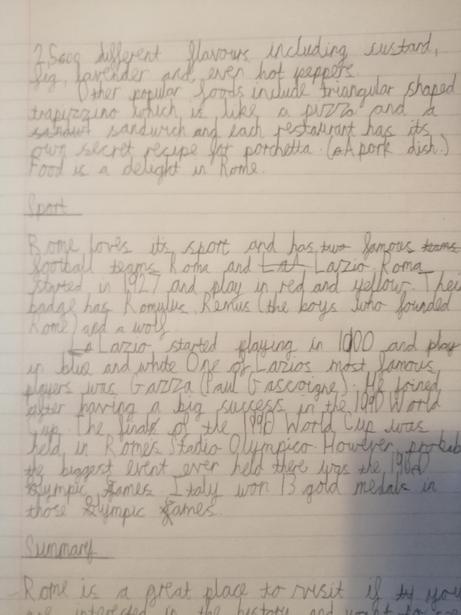 2,500 different flavours including custard,
fig, lavender and even hot peppers.
Other popular foods include triangular shaped
trapizzino which is like a pizza and a
sandwich and each restaurant has its
own secret recipe for porchetta (A pork dish.)
Food is a delight in Rome.
Sport
Rome loves its sport and has two famous teams
football teams Roma and Lazio. Roma
started in 1927 and play in red and yellow. Their
badge has Romulus, Remus (the boys who founded
Rome) and a wolf.
Lazio started playing in 1900 and play
in blue and white One of Lazios most famous
players was Gazza (Paul Gascoigne). He joined
after having a big success in the 1990 World
Cup. The finals of the 1990 World Cup was
held in Romes Stadio Olympico. However, probab
the biggest event ever held there was the
Olympic Games. Italy won 13 gold medals in
those Olympic Games.
Summary
Rome is a great place to visit if you
are interested in the history and want to